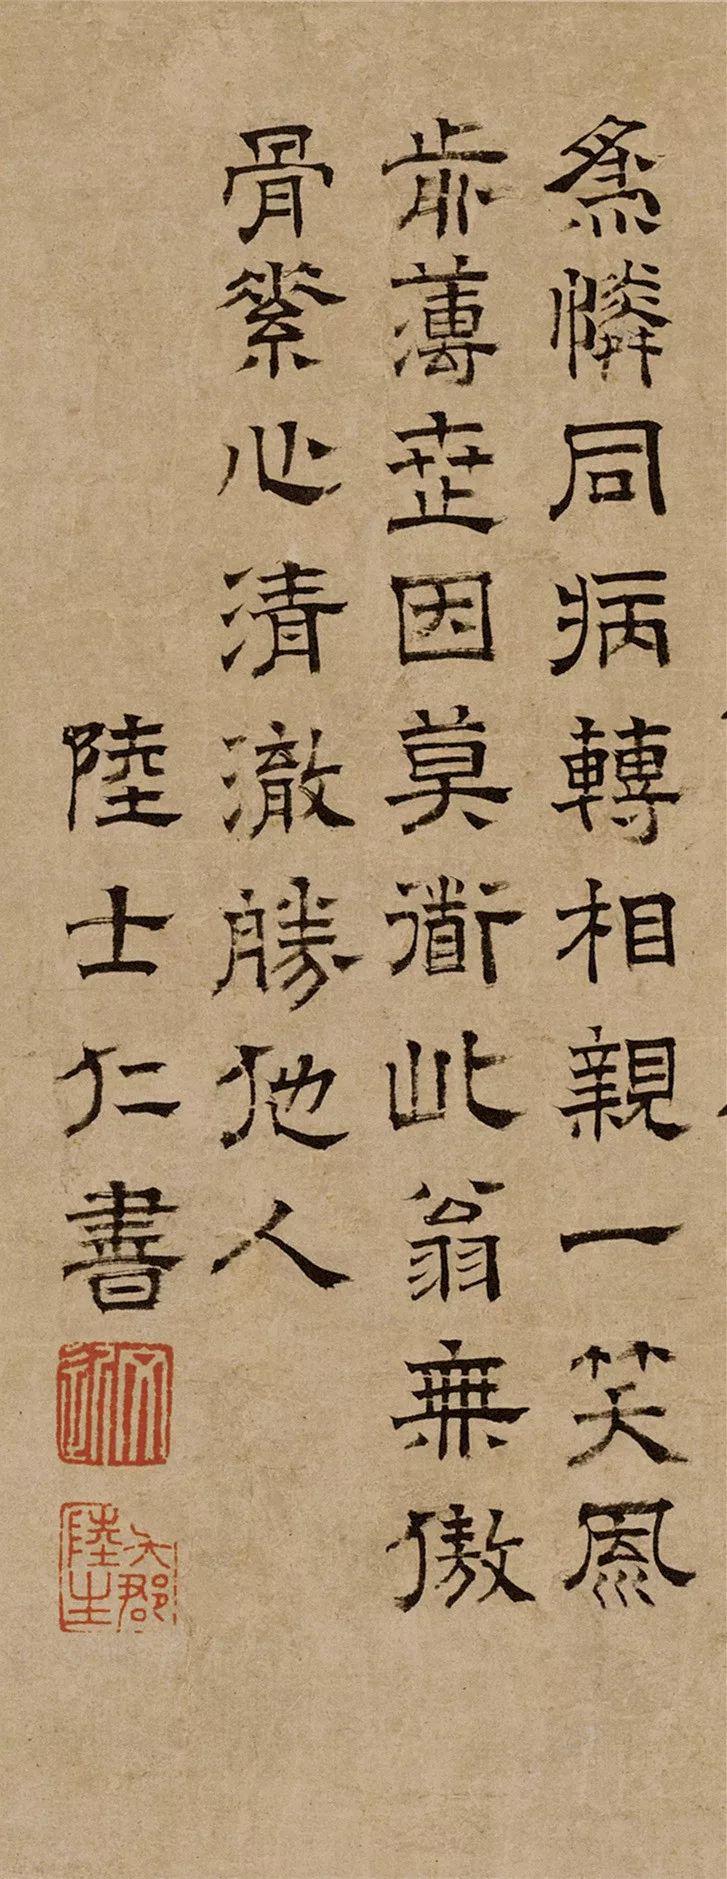 為憐同病轉相親一笑風
歬薄因莫衜此翁無傲
骨素心清澈勝他人
陸士仁書
吳郡陸生